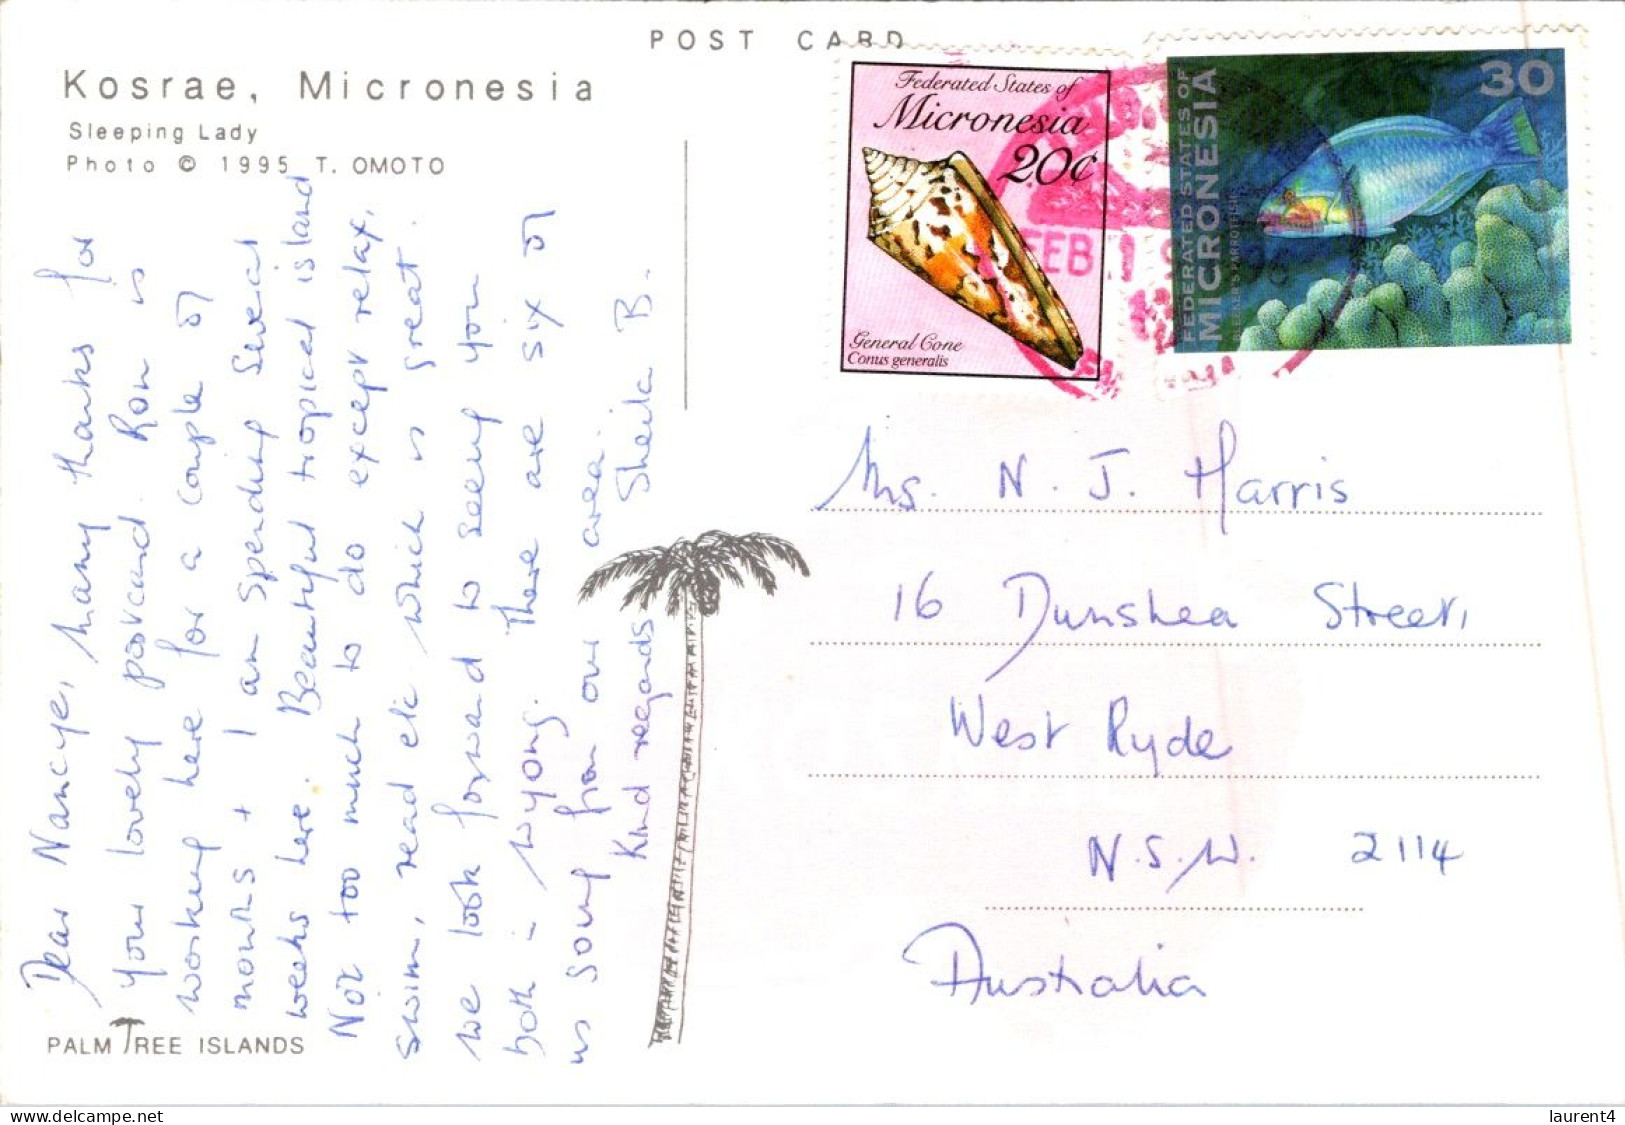 POST CARD
Kosrae, Micronesia
Sleeping Lady
Photo © 1995 T. OMOTO
Dear Nancye, many thanks for
your lovely postcard. Ron is
working here for a couple of
months + I am spending several
weeks here. Beautiful tropical island
Not too much to do except relax,
swim, read etc which is great.
we look forward to seeing you
both in Wyong. There are six of
us going from our area.
Kind regards Sheila B.
PALM TREE ISLANDS
Federated States of
Micronesia
20¢
General Cone
Conus generalis
30
FEDERATED STATES OF
MICRONESIA
FEB 1
Ms. N. J. Harris
16 Dunshea Street,
West Ryde
N.S.W. 2114
Australia
delcampe.net
laurent4